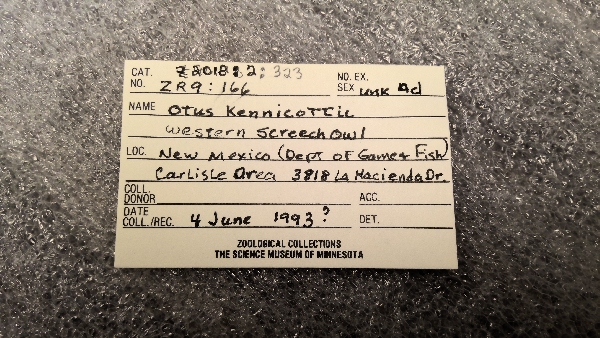 CAT. Z2018:2:323
NO. ZR9:166 NO. EX. SEX unk Ad
NAME Otus Kennicottii
Western Screech Owl
LOC. New Mexico (Dept of Game & Fish)
Carlisle Area 3818 La Hacienda Dr.
COLL. DONOR ACC.
DATE COLL./REC. 4 June 1993? DET.
ZOOLOGICAL COLLECTIONS
THE SCIENCE MUSEUM OF MINNESOTA